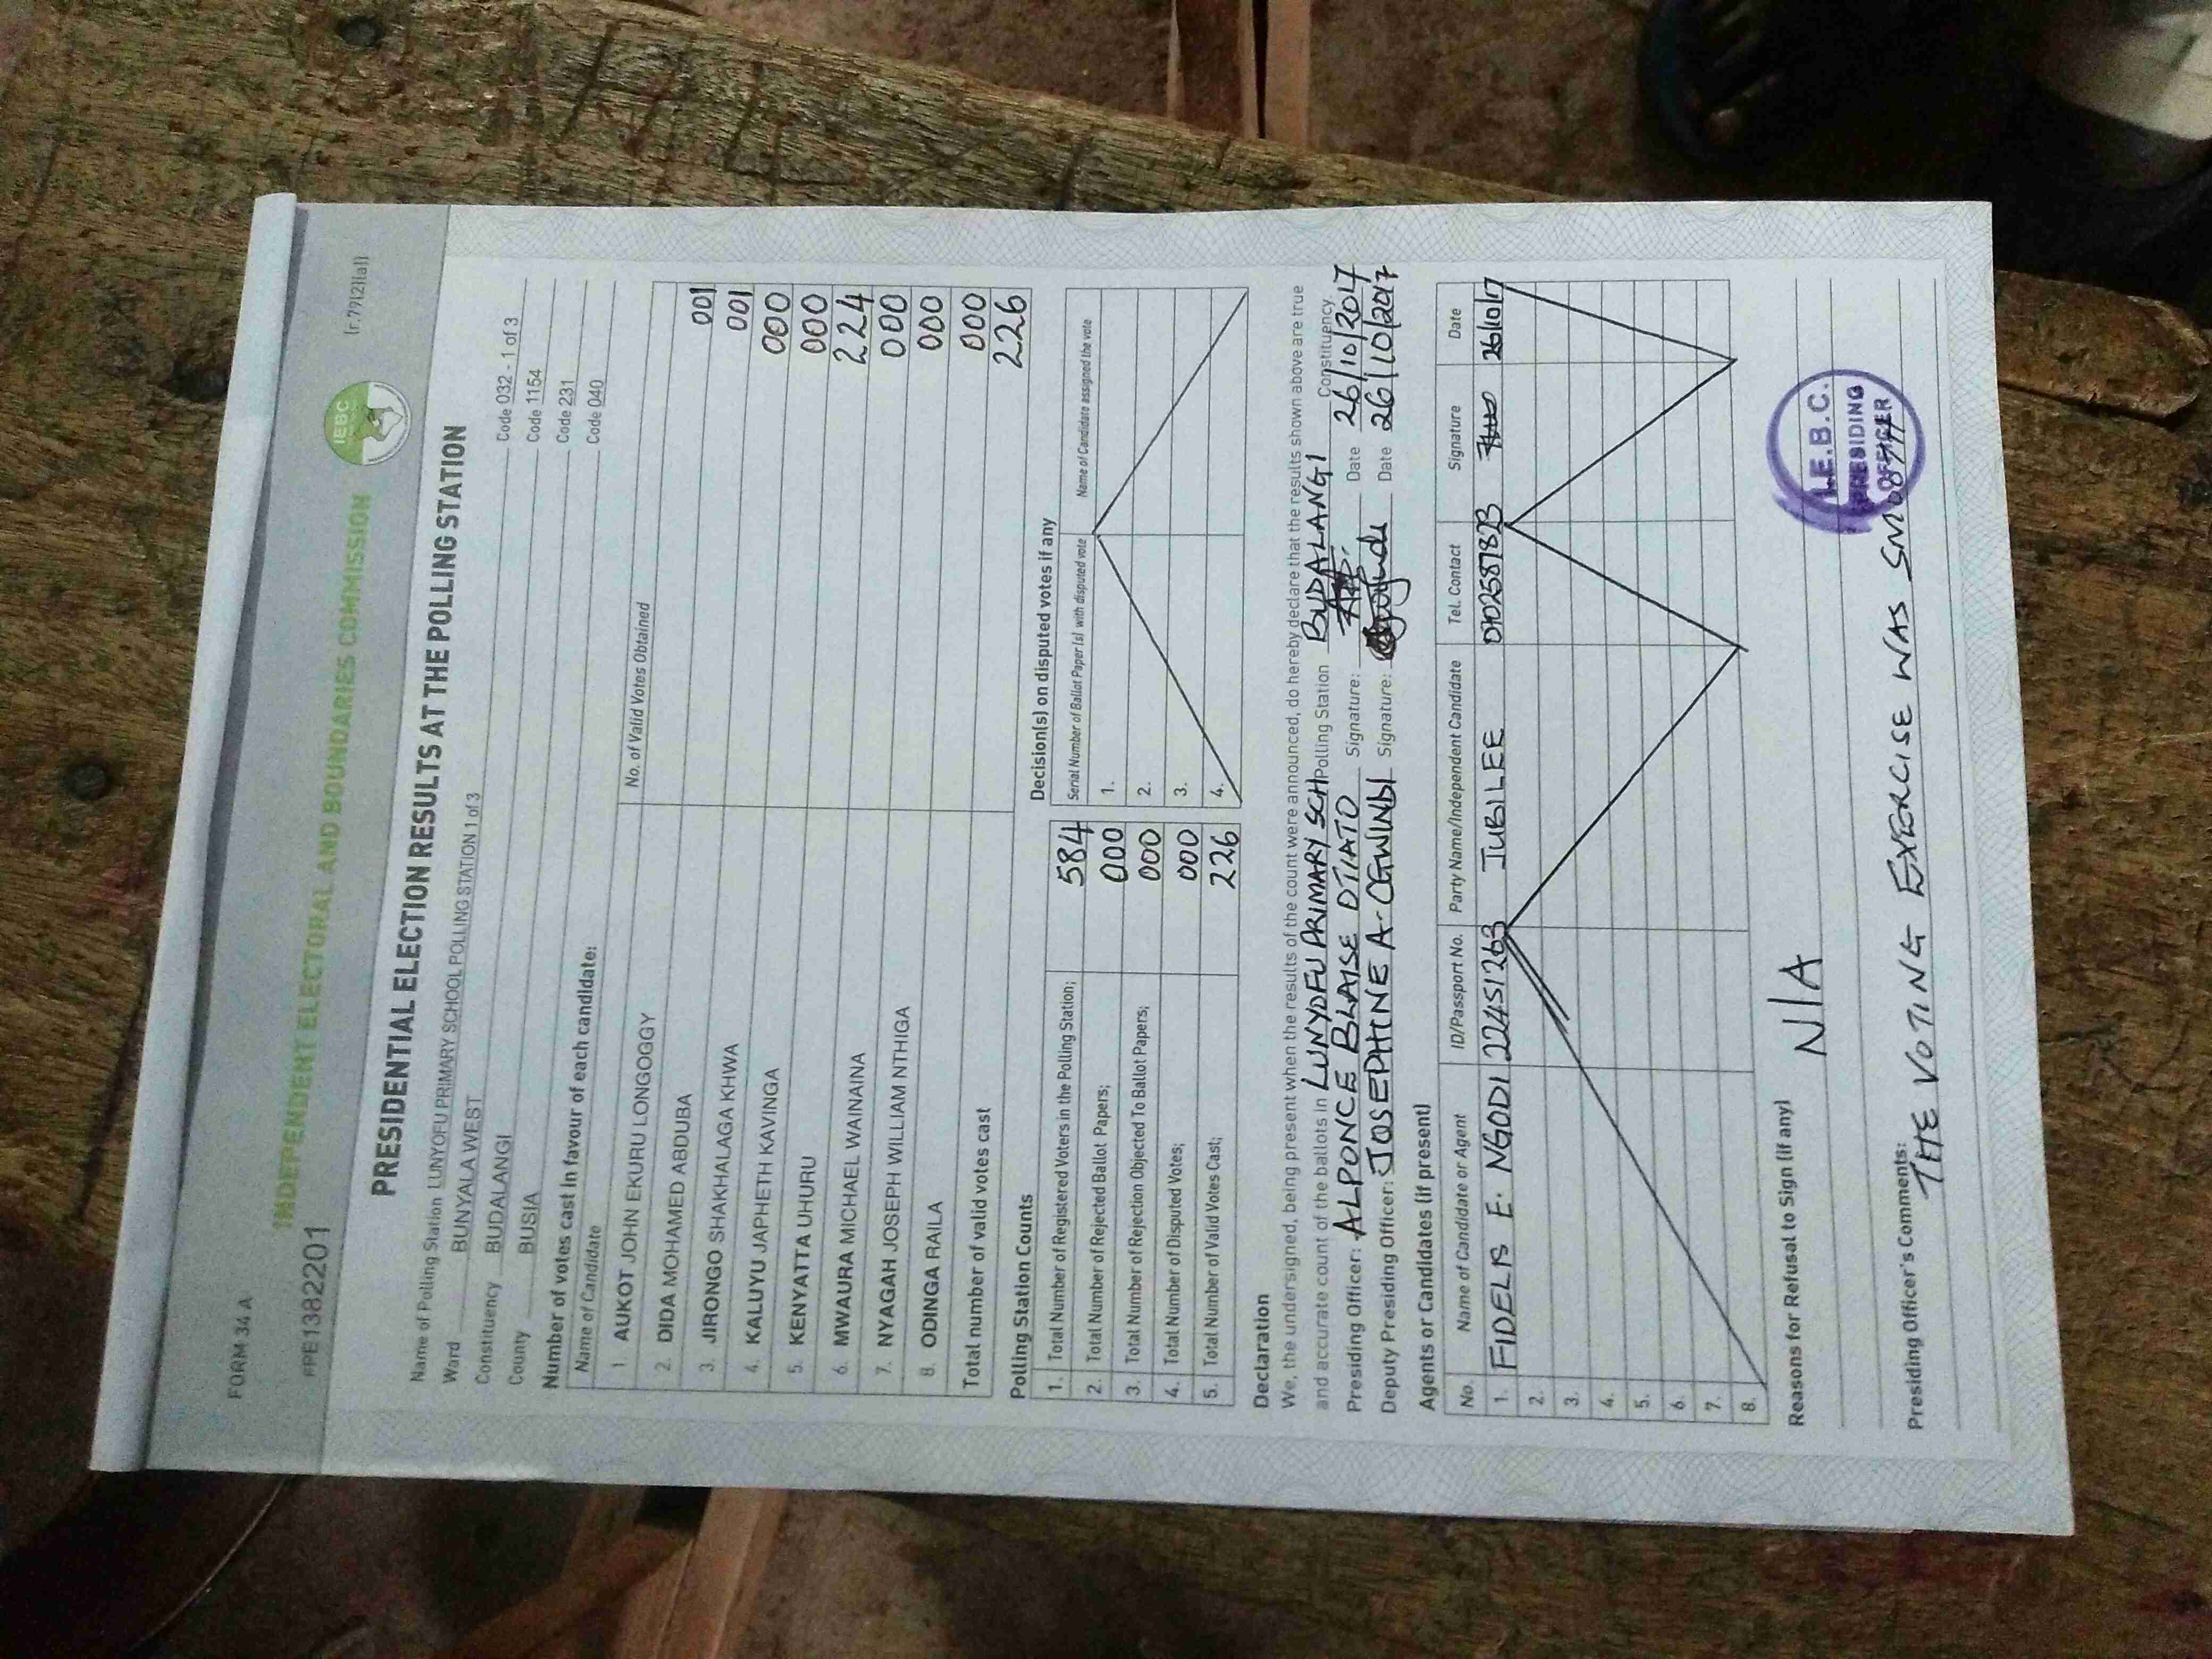 FORM 34 A
(r.79(2)(a))
INDEPENDENT ELECTORAL AND BOUNDARIES COMMISSION
IEBC
PRE1382201
PRESIDENTIAL ELECTION RESULTS AT THE POLLING STATION
Name of Polling Station LUNYOFU PRIMARY SCHOOL POLLING STATION 1 of 3 Code 032 - 1 of 3
Ward BUNYALA WEST Code 1154
Constituency BUDALANGI Code 231
County BUSIA Code 040
Number of votes cast in favour of each candidate:
Name of Candidate No. of Valid Votes Obtained
1. AUKOT JOHN EKURU LONGOGGY 001
2. DIDA MOHAMED ABDUBA 001
3. JIRONGO SHAKHALAGA KHWA 000
4. KALUYU JAPHETH KAVINGA 000
5. KENYATTA UHURU 224
6. MWAURA MICHAEL WAINAINA 000
7. NYAGAH JOSEPH WILLIAM NTHIGA 000
8. ODINGA RAILA 000
Total number of valid votes cast 226
Polling Station Counts
1. Total Number of Registered Voters in the Polling Station; 584
2. Total Number of Rejected Ballot Papers; 000
3. Total Number of Rejection Objected To Ballot Papers; 000
4. Total Number of Disputed Votes; 000
5. Total Number of Valid Votes Cast; 226
Decision(s) on disputed votes if any
Serial Number of Ballot Paper (s) with disputed vote Name of Candidate assigned the vote
1.
2.
3.
4.
Declaration
We, the undersigned, being present when the results of the count were announced, do hereby declare that the results shown above are true
and accurate count of the ballots in LUNYOFU PRIMARY SCH Polling Station BUDALANGI Constituency
Presiding Officer: ALPONCE BLAISE OTIATO Signature: Date 26/10/2017
Deputy Presiding Officer: JOSEPHINE A. OGWINDI Signature: Date 26/10/2017
Agents or Candidates (if present)
No. Name of Candidate or Agent ID/Passport No. Party Name/Independent Candidate Tel. Contact Signature Date
1. FIDELIS E. NGODI 22451263 JUBILEE 0702587823 26/10/17
2.
3.
4.
5.
6.
7.
8.
Reasons for Refusal to Sign (if any)
N/A
Presiding Officer's Comments:
THE VOTING EXERCISE WAS SMOOTH
I.E.B.C.
PRESIDING
OFFICER